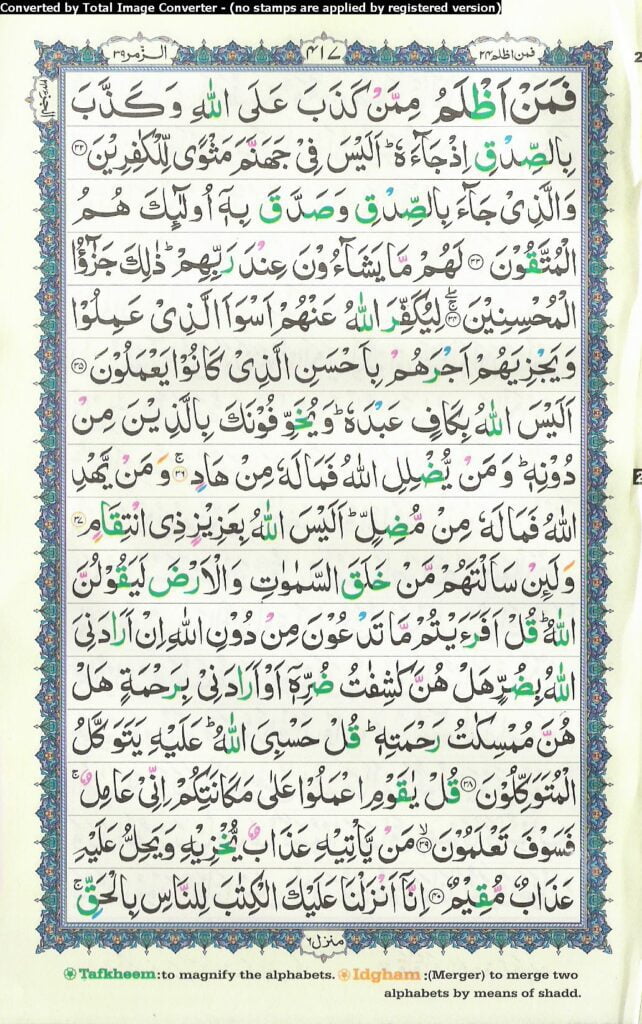 Converted by Total Image Converter - (no stamps are applied by registered version)
فمن اظلم ٢٤
٤١٧
الزمر ٣٩
فَمَنْ اَظْلَمُ مِمَّنْ كَذَبَ عَلَى اللّٰهِ وَكَذَّبَ
بِالصِّدْقِ اِذْ جَآءَهٗ ؕ اَلَيْسَ فِىْ جَهَنَّمَ مَثْوًى لِّلْكٰفِرِيْنَ ۝٣٢
وَالَّذِىْ جَآءَ بِالصِّدْقِ وَصَدَّقَ بِهٖۤ اُولٰٓئِكَ هُمُ
الْمُتَّقُوْنَ ۝٣٣ لَهُمْ مَّا يَشَآءُوْنَ عِنْدَ رَبِّهِمْ ؕ ذٰلِكَ جَزٰٓؤُا
الْمُحْسِنِيْنَ ۝٣٤ۚۖ لِيُكَفِّرَ اللّٰهُ عَنْهُمْ اَسْوَاَ الَّذِىْ عَمِلُوْا
وَيَجْزِيَهُمْ اَجْرَهُمْ بِاَحْسَنِ الَّذِىْ كَانُوْا يَعْمَلُوْنَ ۝٣٥
اَلَيْسَ اللّٰهُ بِكَافٍ عَبْدَهٗ ؕ وَيُخَوِّفُوْنَكَ بِالَّذِيْنَ مِنْ
دُوْنِهٖ ؕ وَمَنْ يُّضْلِلِ اللّٰهُ فَمَا لَهٗ مِنْ هَادٍ ۝٣٦ۚ وَمَنْ يَّهْدِ
اللّٰهُ فَمَا لَهٗ مِنْ مُّضِلٍّ ؕ اَلَيْسَ اللّٰهُ بِعَزِيْزٍ ذِى انْتِقَامٍ ۝٣٧
وَلَئِنْ سَاَلْتَهُمْ مَّنْ خَلَقَ السَّمٰوٰتِ وَالْاَرْضَ لَيَقُوْلُنَّ
اللّٰهُ ؕ قُلْ اَفَرَءَيْتُمْ مَّا تَدْعُوْنَ مِنْ دُوْنِ اللّٰهِ اِنْ اَرَادَنِىَ
اللّٰهُ بِضُرٍّ هَلْ هُنَّ كٰشِفٰتُ ضُرِّهٖۤ اَوْ اَرَادَنِىْ بِرَحْمَةٍ هَلْ
هُنَّ مُمْسِكٰتُ رَحْمَتِهٖ ؕ قُلْ حَسْبِىَ اللّٰهُ ؕ عَلَيْهِ يَتَوَكَّلُ
الْمُتَوَكِّلُوْنَ ۝٣٨ قُلْ يٰقَوْمِ اعْمَلُوْا عَلٰى مَكَانَتِكُمْ اِنِّىْ عَامِلٌ ۚ
فَسَوْفَ تَعْلَمُوْنَ ۝٣٩ۙ مَنْ يَّاْتِيْهِ عَذَابٌ يُّخْزِيْهِ وَيَحِلُّ عَلَيْهِ
عَذَابٌ مُّقِيْمٌ ۝٤٠ اِنَّاۤ اَنْزَلْنَا عَلَيْكَ الْكِتٰبَ لِلنَّاسِ بِالْحَقِّ ۚ
منزل ٦
Tafkheem:to magnify the alphabets. Idgham :(Merger) to merge two
alphabets by means of shadd.